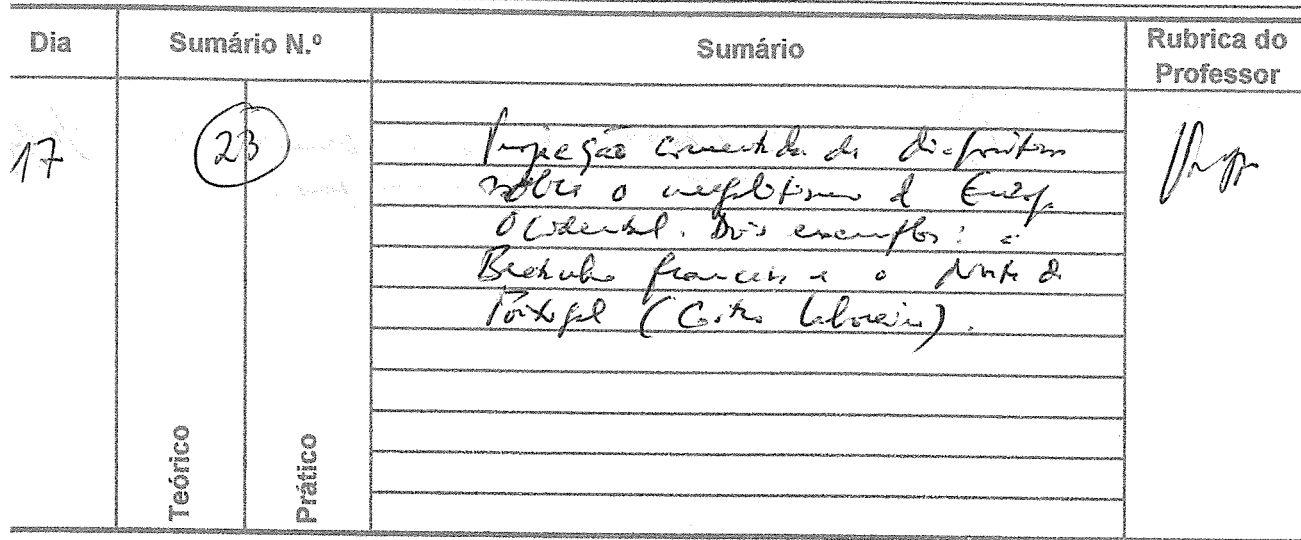 Dia Sumário N.º Sumário Rubrica do Professor
17 23 Projeção comentada de diapositivos
sobre o megalitismo da Europa
Ocidental. Dois exemplos: a
Bretanha francesa e o Norte de
Portugal (Castro Laboreiro).
Teórico Prático